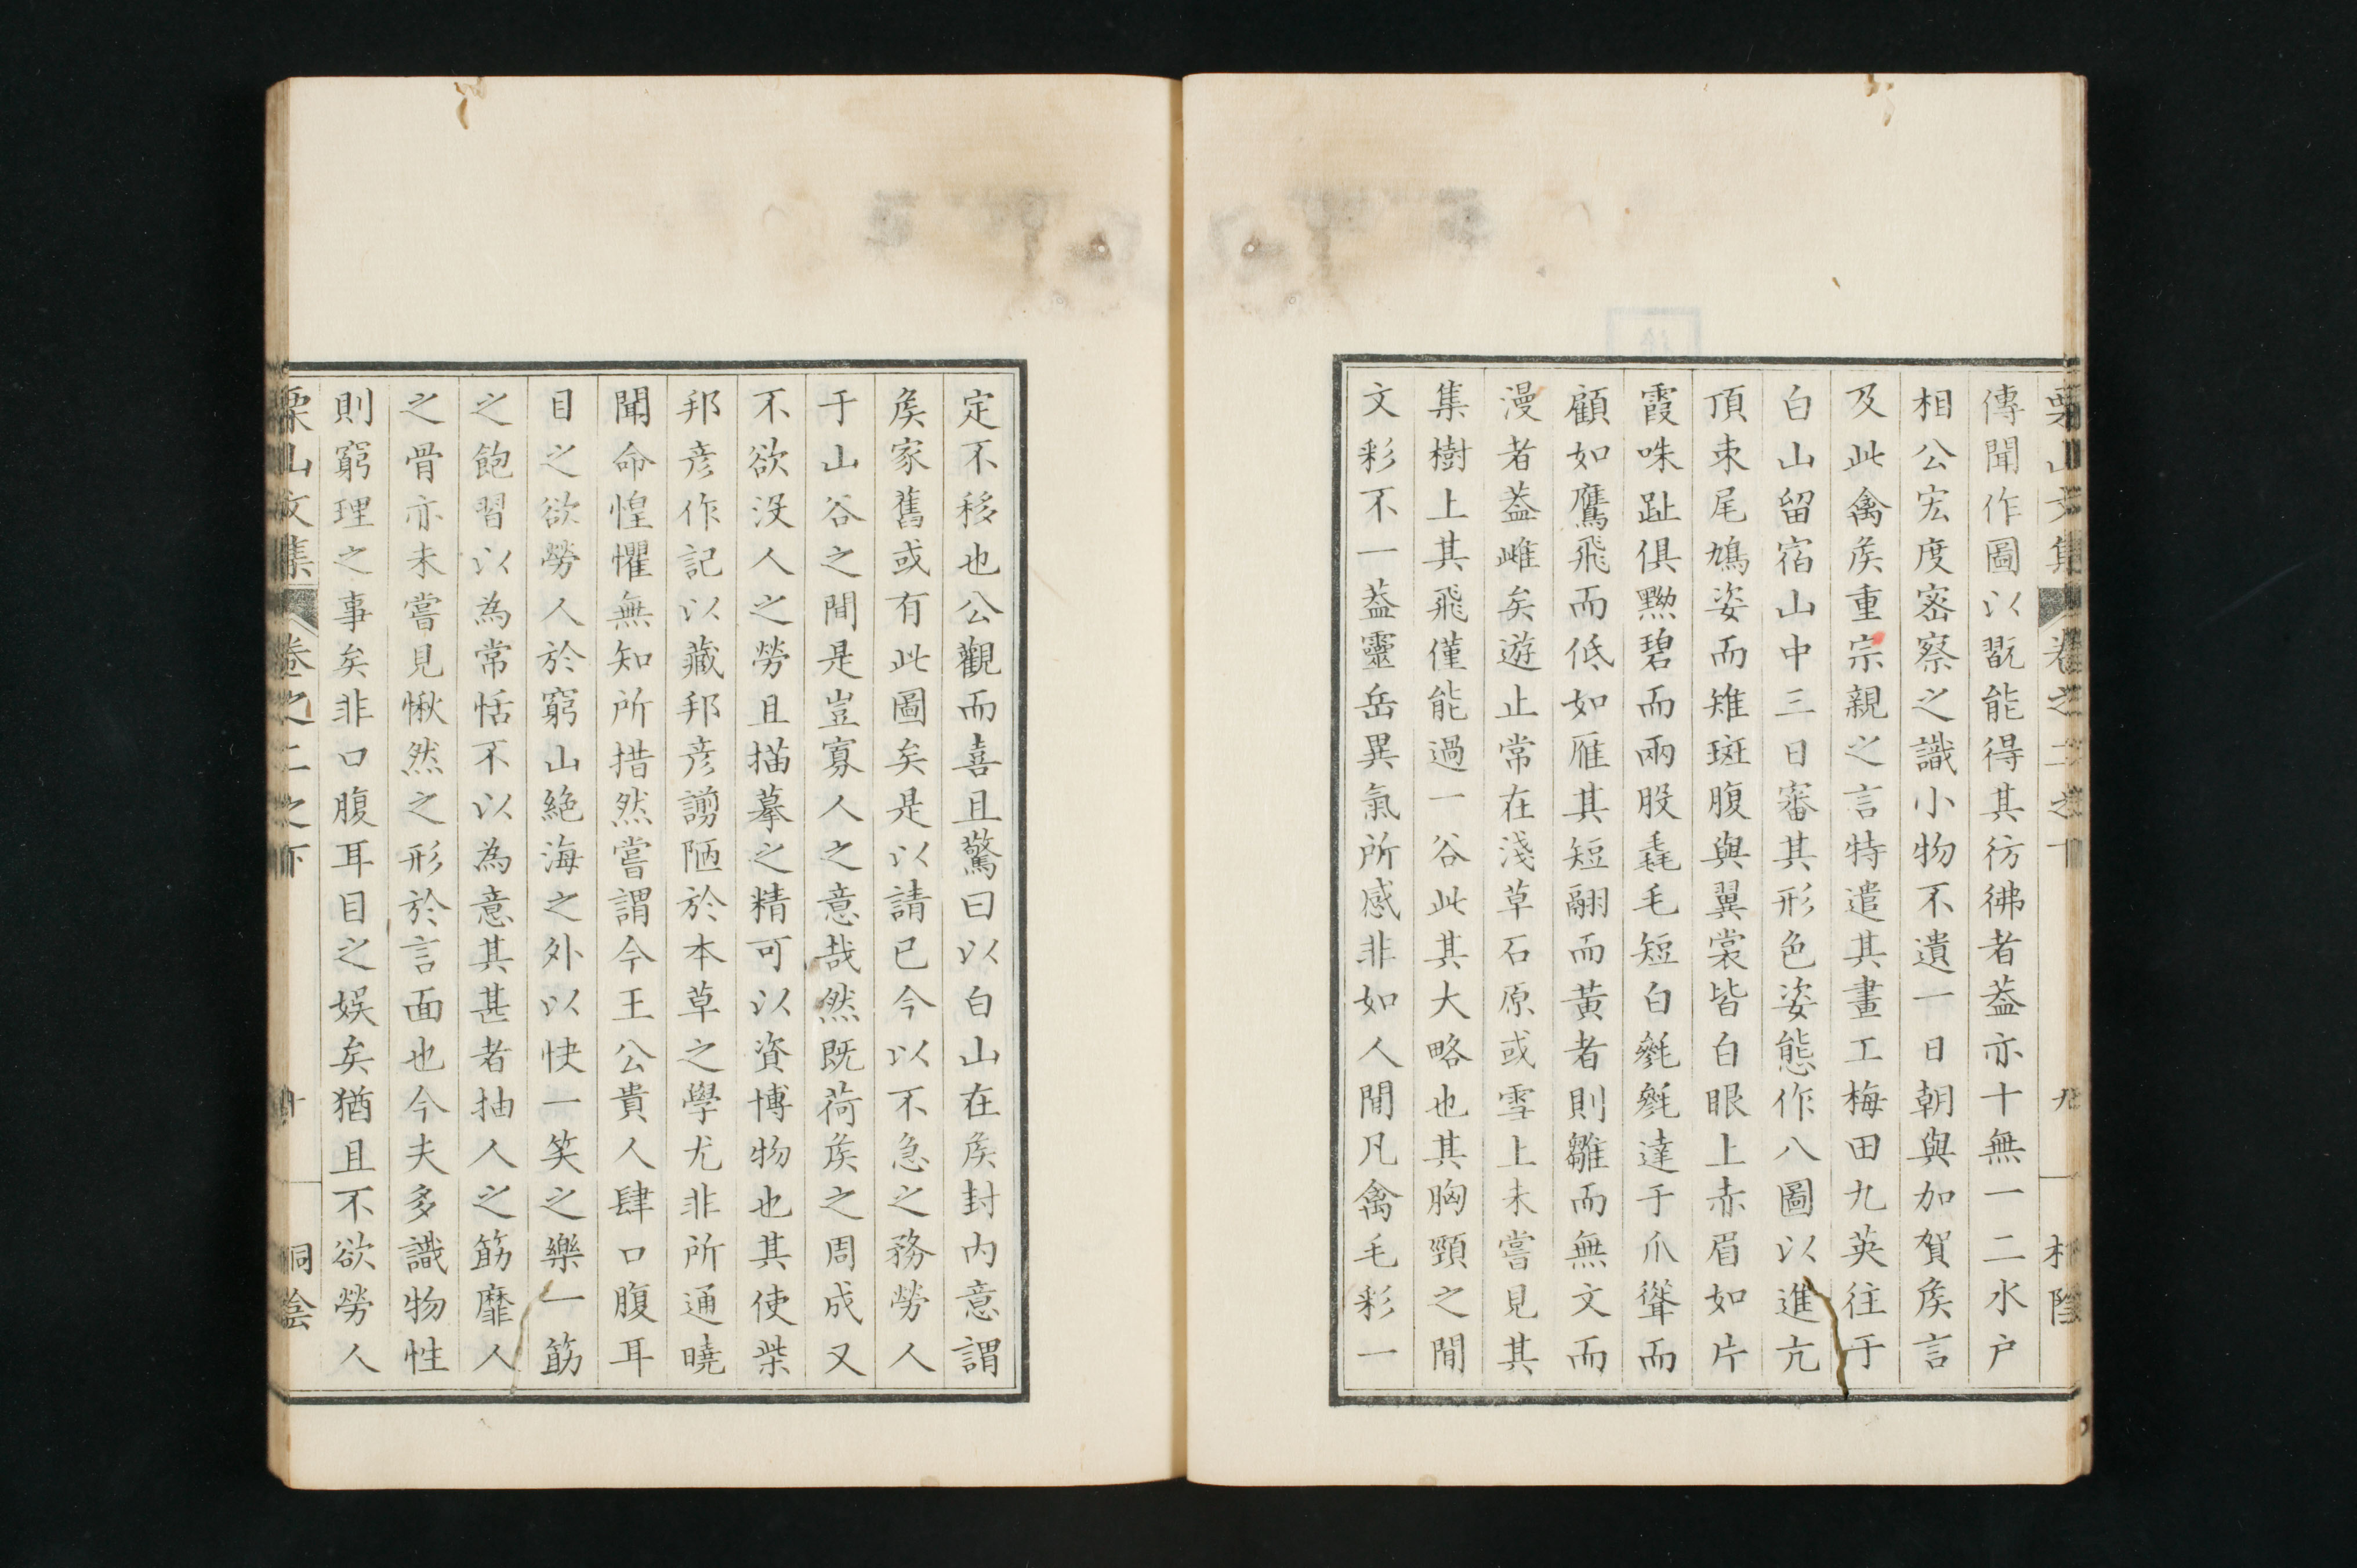 栗山文集 卷之二之下 九 桐陰
傳聞作圖以翫能得其彷彿者葢亦十無一二水戶
相公宏度密察之識小物不遺一日朝與加賀矦言
及此禽矦重宗親之言特遣其畫工梅田九英往于
白山留宿山中三日審其形色姿態作八圖以進亢
頂朿尾鳩姿而雉斑腹與翼裳皆白眼上赤眉如片
霞咮趾俱黝碧而兩股毳毛短白毿毿達于爪聳而
顧如鷹飛而低如雁其短翮而黃者則雛而無文而
漫者葢雌矣遊止常在淺草石原或雪上未嘗見其
集樹上其飛僅能過一谷此其大略也其胸頸之間
文彩不一葢靈岳異氣所感非如人間凡禽毛彩一
定不移也公觀而喜且驚曰以白山在矦封內意謂
矦家舊或有此圖矣是以請已今以不急之務勞人
于山谷之間是豈寡人之意哉然既荷矦之周成又
不欲沒人之勞且描摹之精可以資博物也其使柴
邦彥作記以藏邦彥謭陋於本草之學尤非所通曉
聞命惶懼無知所措然嘗謂今王公貴人肆口腹耳
目之欲勞人於窮山絶海之外以快一笑之樂一筯
之飽習以為常恬不以為意其甚者抽人之筋靡人
之骨亦未嘗見愀然之形於言面也今夫多識物性
則窮理之事矣非口腹耳目之娛矣猶且不欲勞人
栗山文集 卷之二之下 十 桐陰